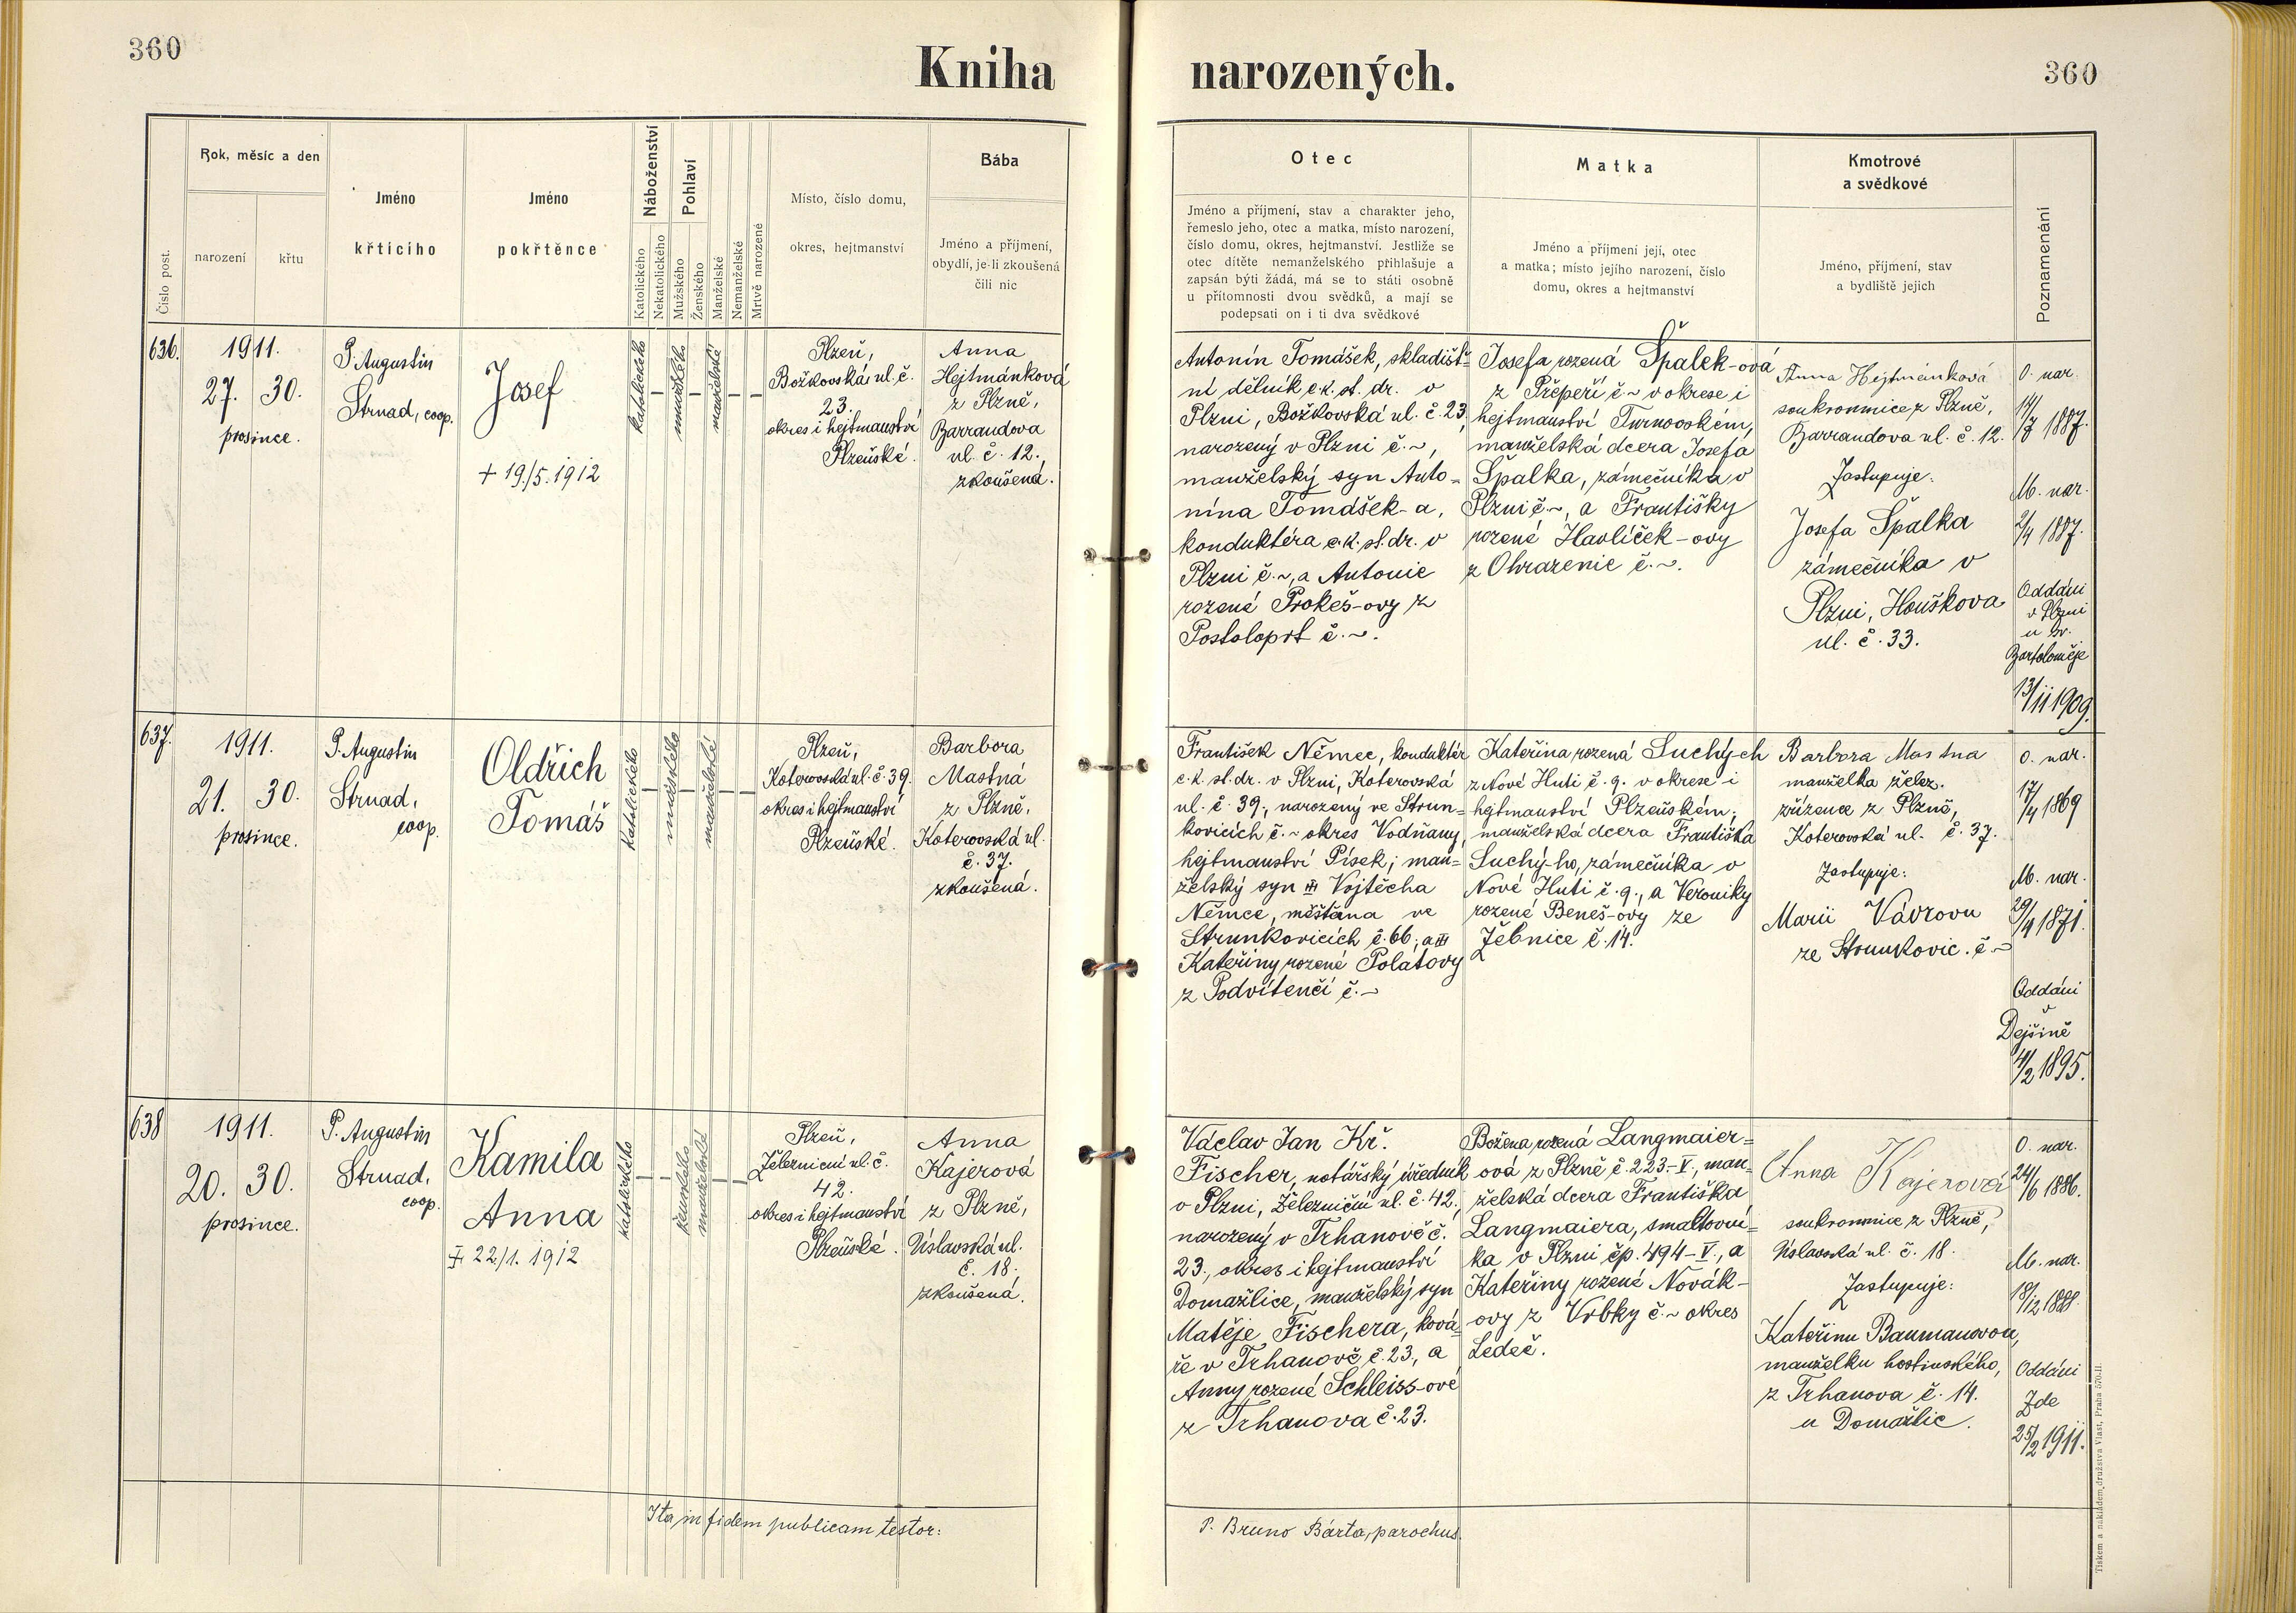 360
Kniha narozených.
360
Číslo post.
Rok, měsíc a den
narození
křtu
Jméno
křtícího
Jméno
pokřtěnce
Náboženství
Katolického
Nekatolického
Pohlaví
Mužského
Ženského
Manželské
Nemanželské
Mrtvě narozené
Místo, číslo domu,
okres, hejtmanství
Bába
Jméno a příjmení,
obydlí, je-li zkoušená
čili nic
Otec
Jméno a příjmení, stav a charakter jeho,
řemeslo jeho, otec a matka, místo narození,
číslo domu, okres, hejtmanství. Jestliže se
otec dítěte nemanželského přihlašuje a
zapsán býti žádá, má se to státi osobně
u přítomnosti dvou svědků, a mají se
podepsati on i ti dva svědkové
Matka
Jméno a příjmení její, otec
a matka; místo jejího narození, číslo
domu, okres a hejtmanství
Kmotrové
a svědkové
Jméno, příjmení, stav
a bydliště jejich
Poznamenání
636.
1911.
27. 30.
prosince.
P. Augustin
Strnad, coop.
Josef
+ 19./5. 1912
katolického
mužského
manželské
Plzeň,
Božkovská ul. č.
23.
okres i hejtmanství
Plzeňské.
Anna
Hejtmánková
z Plzně,
Barrandova
ul. č. 12.
zkoušená.
Antonín Tomášek, skladišt-
ní dělník c.k. st. dr. v
Plzni, Božkovská ul. č. 23,
narozený v Plzni č. ~,
manželský syn Anto-
nína Tomášek-a,
konduktéra c.k. st. dr. v
Plzni č. ~, a Antonie
rozené Prokeš-ovy z
Postoloprt č. ~.
Josefa rozená Špalek-ová
z Přepeří č ~ v okrese i
hejtmanství Turnovském,
manželská dcera Josefa
Špalka, zámečníka v
Plzni č. ~, a Františky
rozené Havlíček-ovy
z Ohrazenic č. ~.
Anna Hejtmánková
soukromnice z Plzně,
Barrandova ul. č. 12.
Zastupuje:
Josefa Špalka
zámečníka v
Plzni, Houškova
ul. č. 33.
O. nar.
14/7 1887.
M. nar.
2/4 1887.
Oddáni
v Plzni
u sv.
Bartoloměje
13/11 1909.
637.
1911.
21. 30.
prosince.
P. Augustin
Strnad,
coop.
Oldřich
Tomáš
katolického
mužského
manželské
Plzeň,
Koterovská ul. č. 39.
okres i hejtmanství
Plzeňské.
Barbora
Mastná
z Plzně,
Koterovská ul.
č. 37.
zkoušená.
František Němec, konduktér
c.k. st. dr. v Plzni, Koterovská
ul. č. 39., narozený ve Strun-
kovicích č. ~ okres Vodňany,
hejtmanství Písek; man-
želský syn Vojtěcha
Němce, měšťana ve
Strunkovicích č. 66, a
Kateřiny rozené Polátovy
z Podvitenčí č. ~
Kateřina rozená Suchých
z Nové Huti č. 9. v okrese i
hejtmanství Plzeňském;
manželská dcera Františka
Suchý-ho, zámečníka v
Nové Huti č. 9., a Veroniky
rozené Beneš-ovy ze
Žebnice č. 14.
Barbora Mastna
manželka želez.
zřízence z Plzně,
Koterovská ul. č. 37.
Zastupuje:
Marii Vávrovu
ze Strunkovic. č. ~
O. nar.
17/4 1869
M. nar.
29/4 1871.
Oddáni
v
Dejšině
4/2 1895.
638
1911.
20. 30.
prosince.
P. Augustin
Strnad,
coop.
Kamila
Anna
22./1. 1912
katolického
ženského
manželské
Plzeň,
Železniční ul. č.
42.
okres i hejtmanství
Plzeňské.
Anna
Kajerová
z Plzně,
Úslavská ul.
č. 18.
zkoušená.
Václav Jan Kř.
Fischer, notářský úředník
v Plzni, Železniční ul. č. 42.,
narozený v Trhanově č.
23., okres i hejtmanství
Domažlice, manželský syn
Matěje Fischera, ková-
ře v Trhanově č. 23, a
Anny rozené Schleiss-ové
z Trhanova č. 23.
Božena rozená Langmaier-
ová z Plzně č. 223.-V., man-
želská dcera Františka
Langmaiera, smaltovní-
ka v Plzni čp. 494-V., a
Kateřiny rozené Novák-
ovy z Vrbky č. ~ okres
Ledeč.
Anna Kajerová
soukromnice z Plzně,
Úslavská ul. č. 18.
Zastupuje:
Kateřinu Baumanovou,
manželku hostinského,
z Trhanova č. 14.
u Domažlic.
O. nar.
24/6 1886.
M. nar.
18/12 1888.
Oddáni
Zde
25/2 1911.
Ita in fidem publicam testor:
P. Bruno Bárta, parochus.
Tiskem a nákladem družstva Vlast, Praha 570-II.